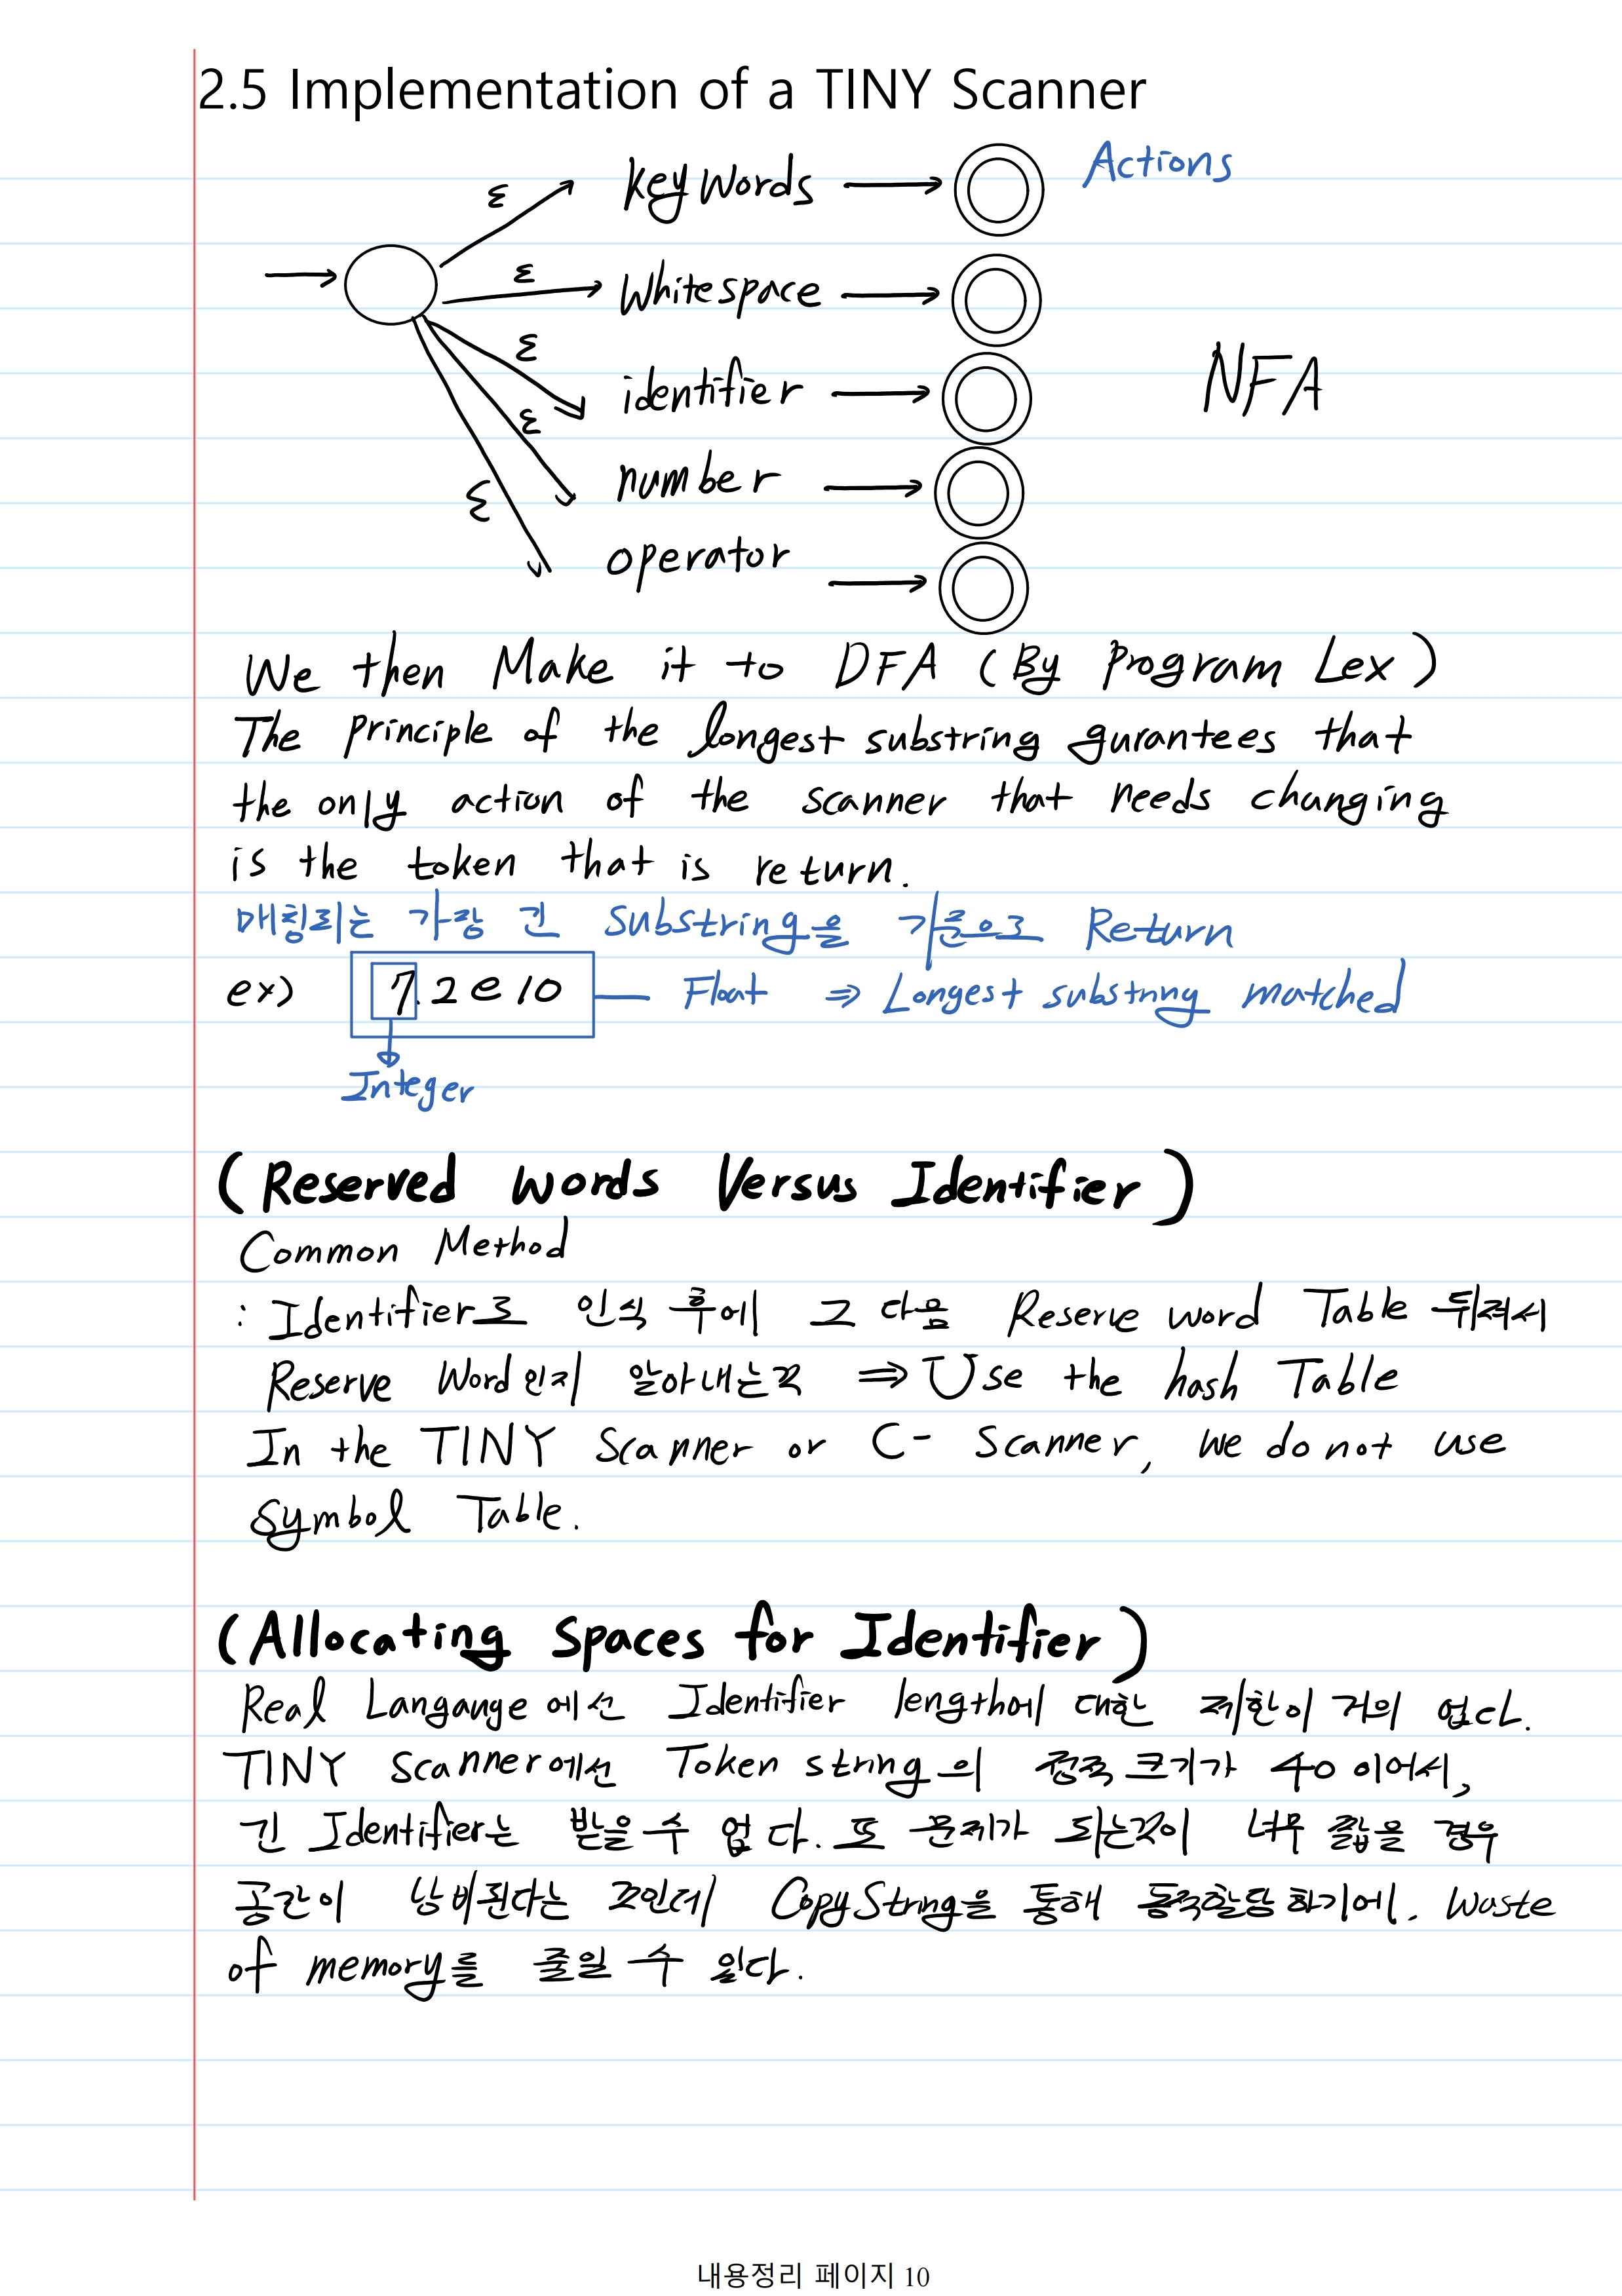 2.5 Implementation of a TINY Scanner
Actions
ε keywords
ε Whitespace
ε identifier
NFA
ε number
ε operator
We then Make it to DFA (By Program Lex)
The principle of the longest substring gurantees that
the only action of the scanner that needs changing
is the token that is return.
매칭되는 가장 긴 Substring을 기준으로 Return
ex) 7.2e10 Float ⇒ Longest substring matched
Integer
(Reserved words Versus Identifier)
Common Method
: Identifier로 인식 후에 그 다음 Reserve word Table 뒤져서
Reserve Word인지 알아내는것 ⇒ Use the hash Table
In the TINY Scanner or C- Scanner, we do not use
Symbol Table.
(Allocating Spaces for Identifier)
Real Langauge에선 Identifier length에 대한 제한이 거의 없다.
TINY Scanner에선 Token string의 크기가 40이어서,
긴 Identifier는 받을 수 없다. 또 문제가 되는것이 너무 짧을 경우
공간이 낭비된다는 것인데 CopyString을 통해 동적할당 하기에. Waste
of memory를 줄일 수 있다.
내용정리 페이지 10